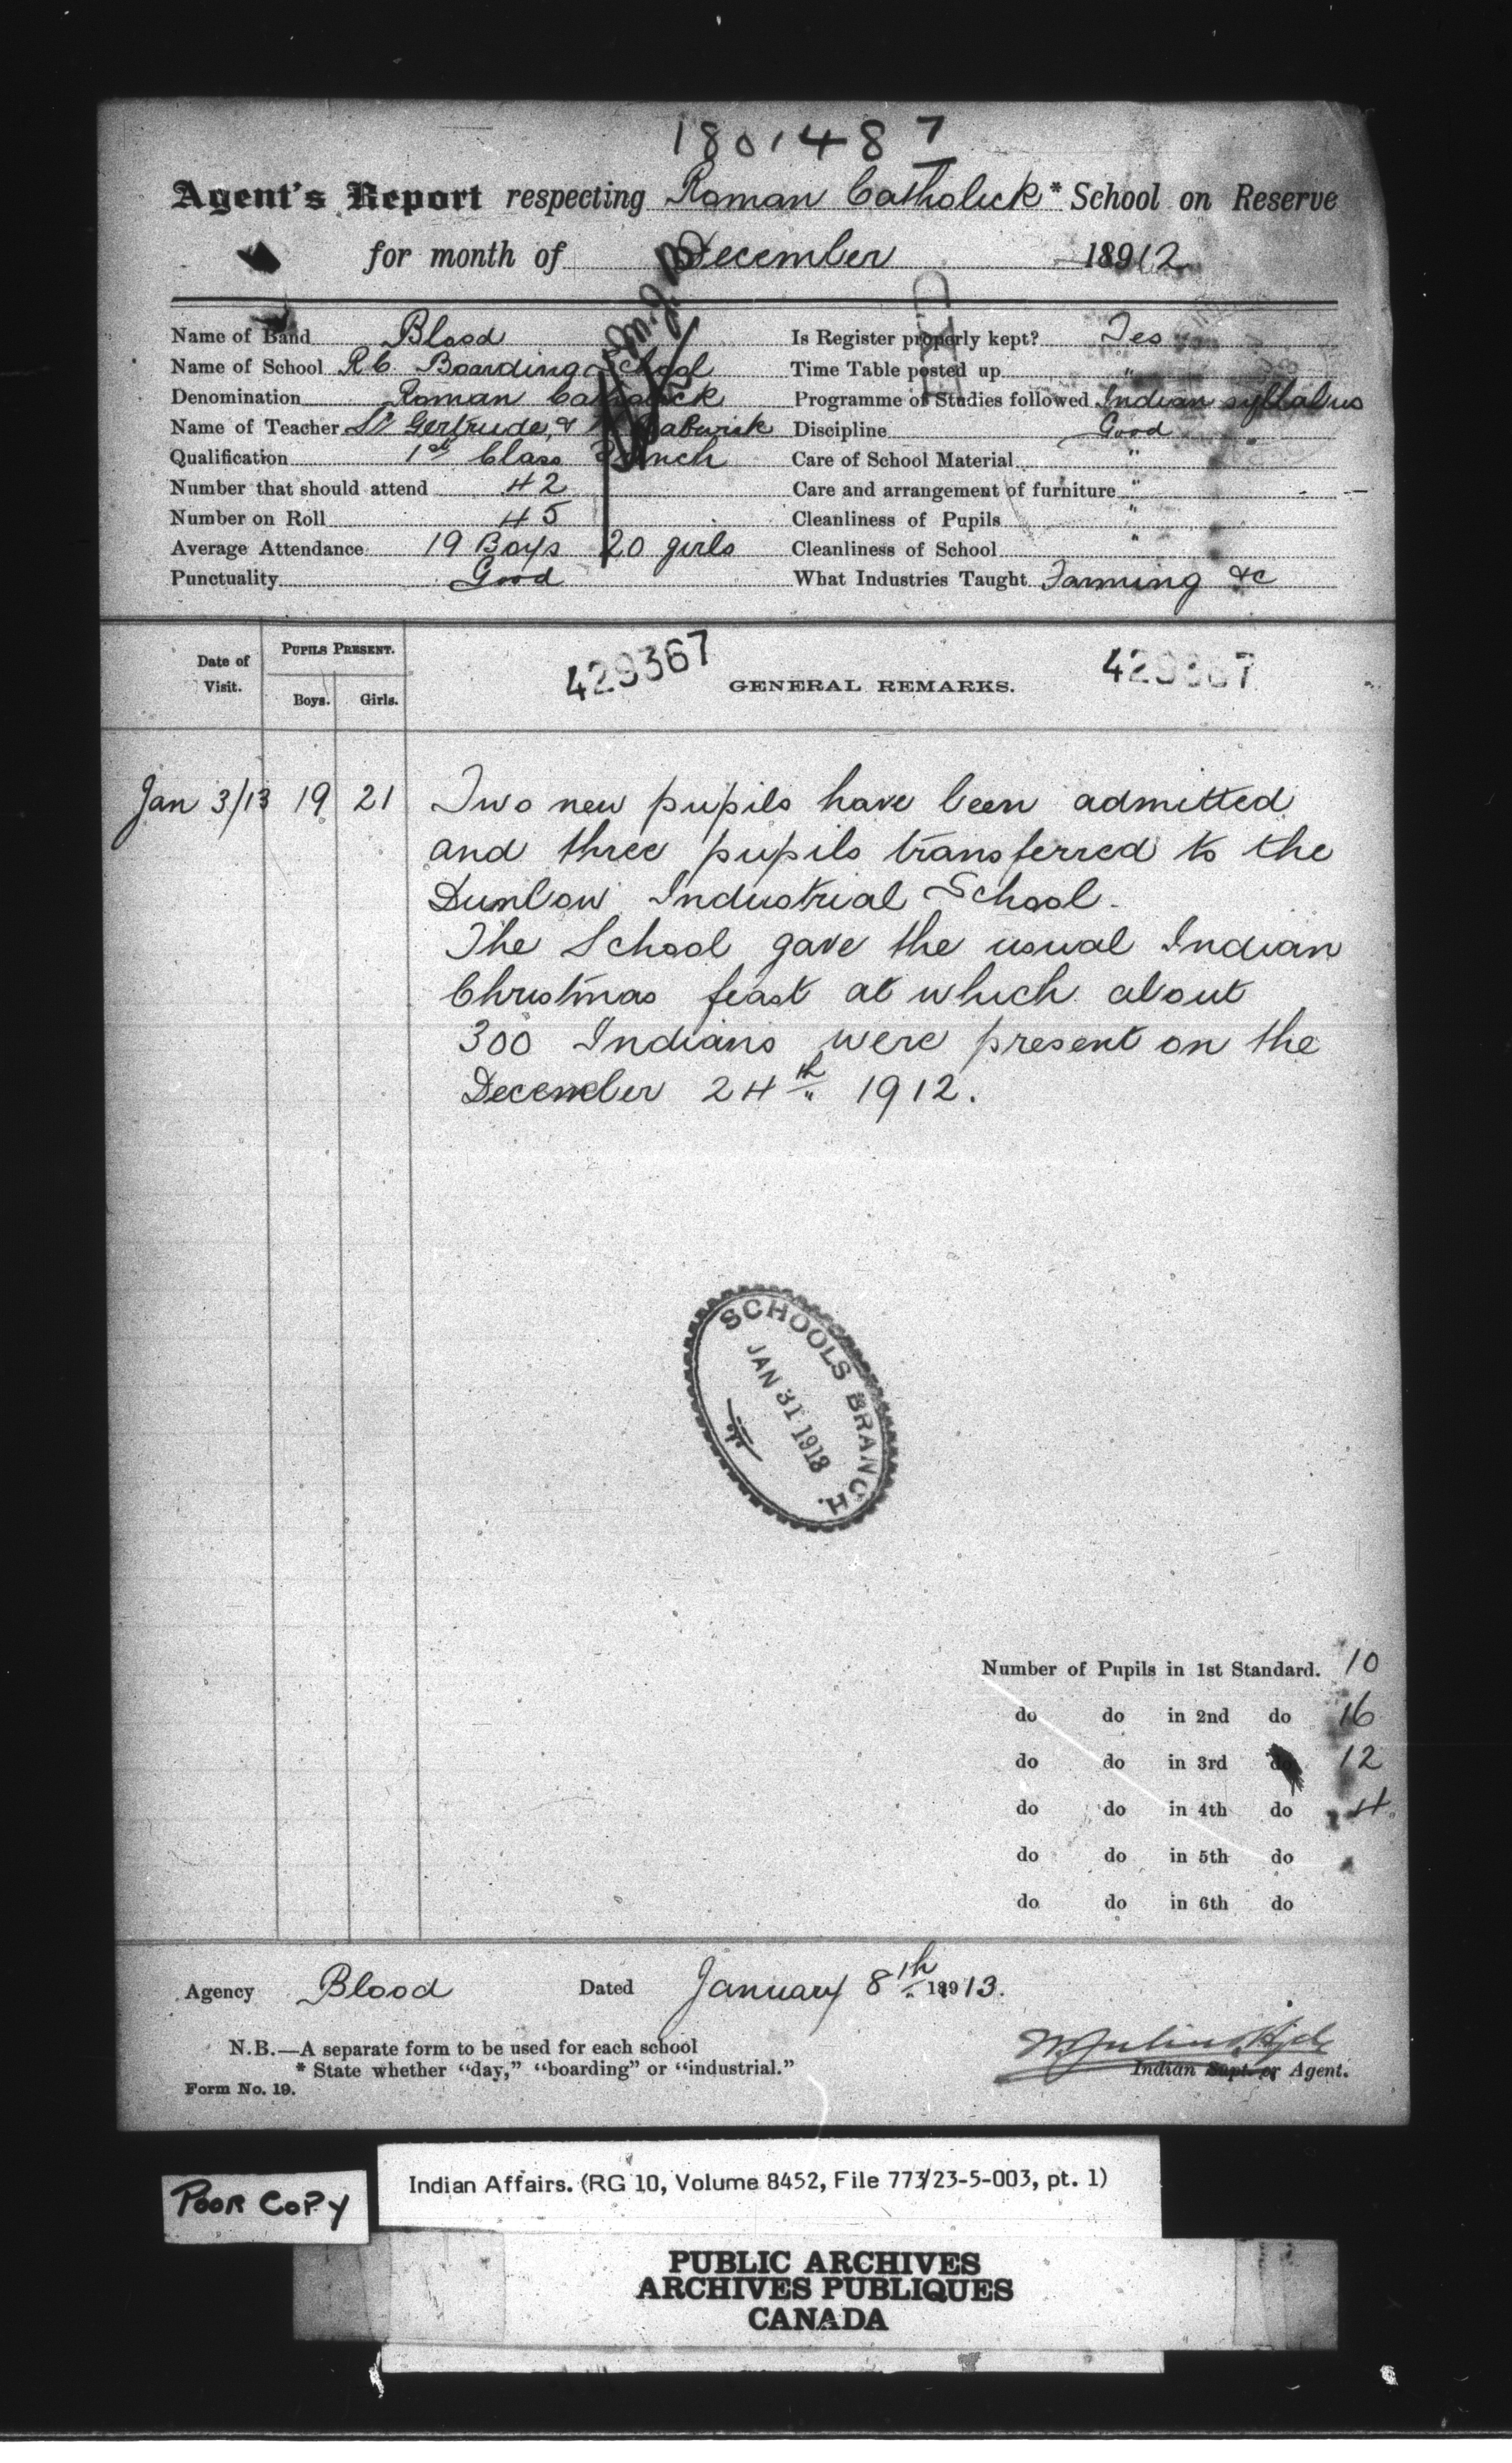 1801487
Agent's Report respecting Roman Catholick* School on Reserve
for month of December 18912
Name of Band Blood
Name of School R C Boarding School
Denomination Roman Catholick
Name of Teacher Sr Gertrude, &
Qualification 1st Class French
Number that should attend 42
Number on Roll 45
Average Attendance 19 Boys 20 girls
Punctuality Good
Is Register properly kept? Yes
Time Table posted up "
Programme of Studies followed Indian syllabus
Discipline Good
Care of School Material "
Care and arrangement of furniture "
Cleanliness of Pupils "
Cleanliness of School "
What Industries Taught Farming &c
Date of Visit.
PUPILS PRESENT.
Boys. Girls.
429367
GENERAL REMARKS.
429367
Jan 3/13 19 21 Two new pupils have been admitted
and three pupils transferred to the
Dunbow Industrial School.
The School gave the usual Indian
Christmas feast at which about
300 Indians were present on the
December 24th 1912.
SCHOOLS BRANCH.
JAN 31 1913
Number of Pupils in 1st Standard. 10
do do in 2nd do 16
do do in 3rd do 12
do do in 4th do 4
do do in 5th do
do do in 6th do
Agency Blood Dated January 8th 18913.
N.B.—A separate form to be used for each school
* State whether "day," "boarding" or "industrial."
Form No. 19.
W. Julius Hyde
Indian Supt. or Agent.
POOR COPY
Indian Affairs. (RG 10, Volume 8452, File 773/23-5-003, pt. 1)
PUBLIC ARCHIVES
ARCHIVES PUBLIQUES
CANADA